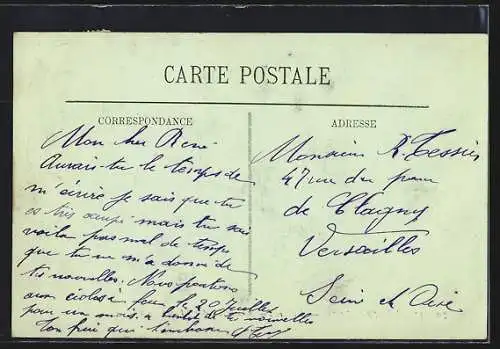 CARTE POSTALE
CORRESPONDANCE
ADRESSE
Mon cher René
Aurais-tu le temps de
m'écrire je sais que tu
es très occupé mais tu sais
voilà pas mal de temps
que tu ne m'a donné de
tes nouvelles. Nous partons
aux écoles à feu le 20 Juillet
pour un mois. à bientôt de tes nouvelles
Ton qui t'embrasse
Monsieur R. Tessier
47 rue du parc
de Clagny
Versailles
Seine et Oise